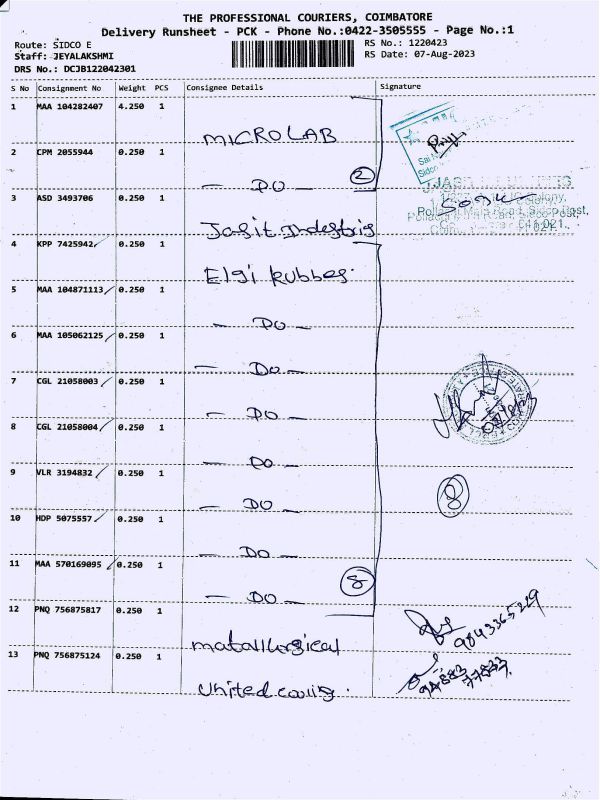 THE PROFESSIONAL COURIERS, COIMBATORE
Delivery Runsheet - PCK - Phone No.:0422-3505555 - Page No.:1
Route: SIDCO E
RS No.: 1220423
Staff: JEYALAKSHMI
RS Date: 07-Aug-2023
DRS No.: DCJB122042301
S No Consignment No Weight PCS Consignee Details Signature
1 MAA 104282407 4.250 1 MICROLAB
2 CPM 2055944 0.250 1 — DO — 2
3 ASD 3493706 0.250 1 Jasit Indestris
4 KPP 7425942 0.250 1 Elgi Rubber.
5 MAA 104871113 0.250 1 — DO —
6 MAA 105062125 0.250 1 — Do —
7 CGL 21058003 0.250 1 — DO —
8 CGL 21058004 0.250 1 — DO —
9 VLR 3194832 0.250 1 — DO — 8
10 HDP 5075557 0.250 1 — DO —
11 MAA 570169095 0.250 1 — DO — 8
12 PNQ 756875817 0.250 1 matallurgical 9843365229
13 PNQ 756875124 0.250 1 United caring.